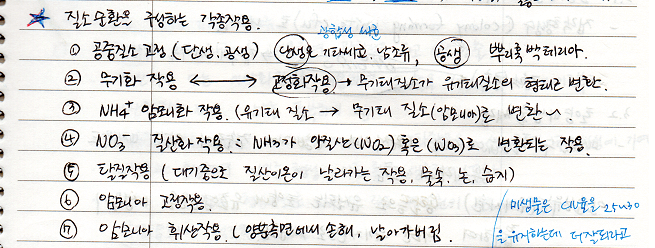 ★ 질소순환을 구성하는 각종작용.
광합성 세균
① 공중질소 고정 (단생, 공생) 단생은 기타세균, 남조류, 공생 뿌리혹박테리아.
② 무기화 작용 ←→ 고정화작용 → 무기태질소가 유기태질소의 형태로 변환.
③ NH4+ 암모니아화 작용. (유기태 질소 → 무기태 질소(암모니아)로 변환
④ NO3- 질산화작용 : NH3가 아질산(NO2) 혹은 (NO3)로 변환되는 작용.
⑤ 탈질작용 (대기중으로 질산이온이 날라가는 작용, 물속, 논, 습지)
⑥ 암모니아 고정작용.
⑦ 암모니아 휘산작용. ( 양분측면에서 손해, 날아가버림.
미생물은 C/N율을 25~30
을 유지하는데 더 잘되라고